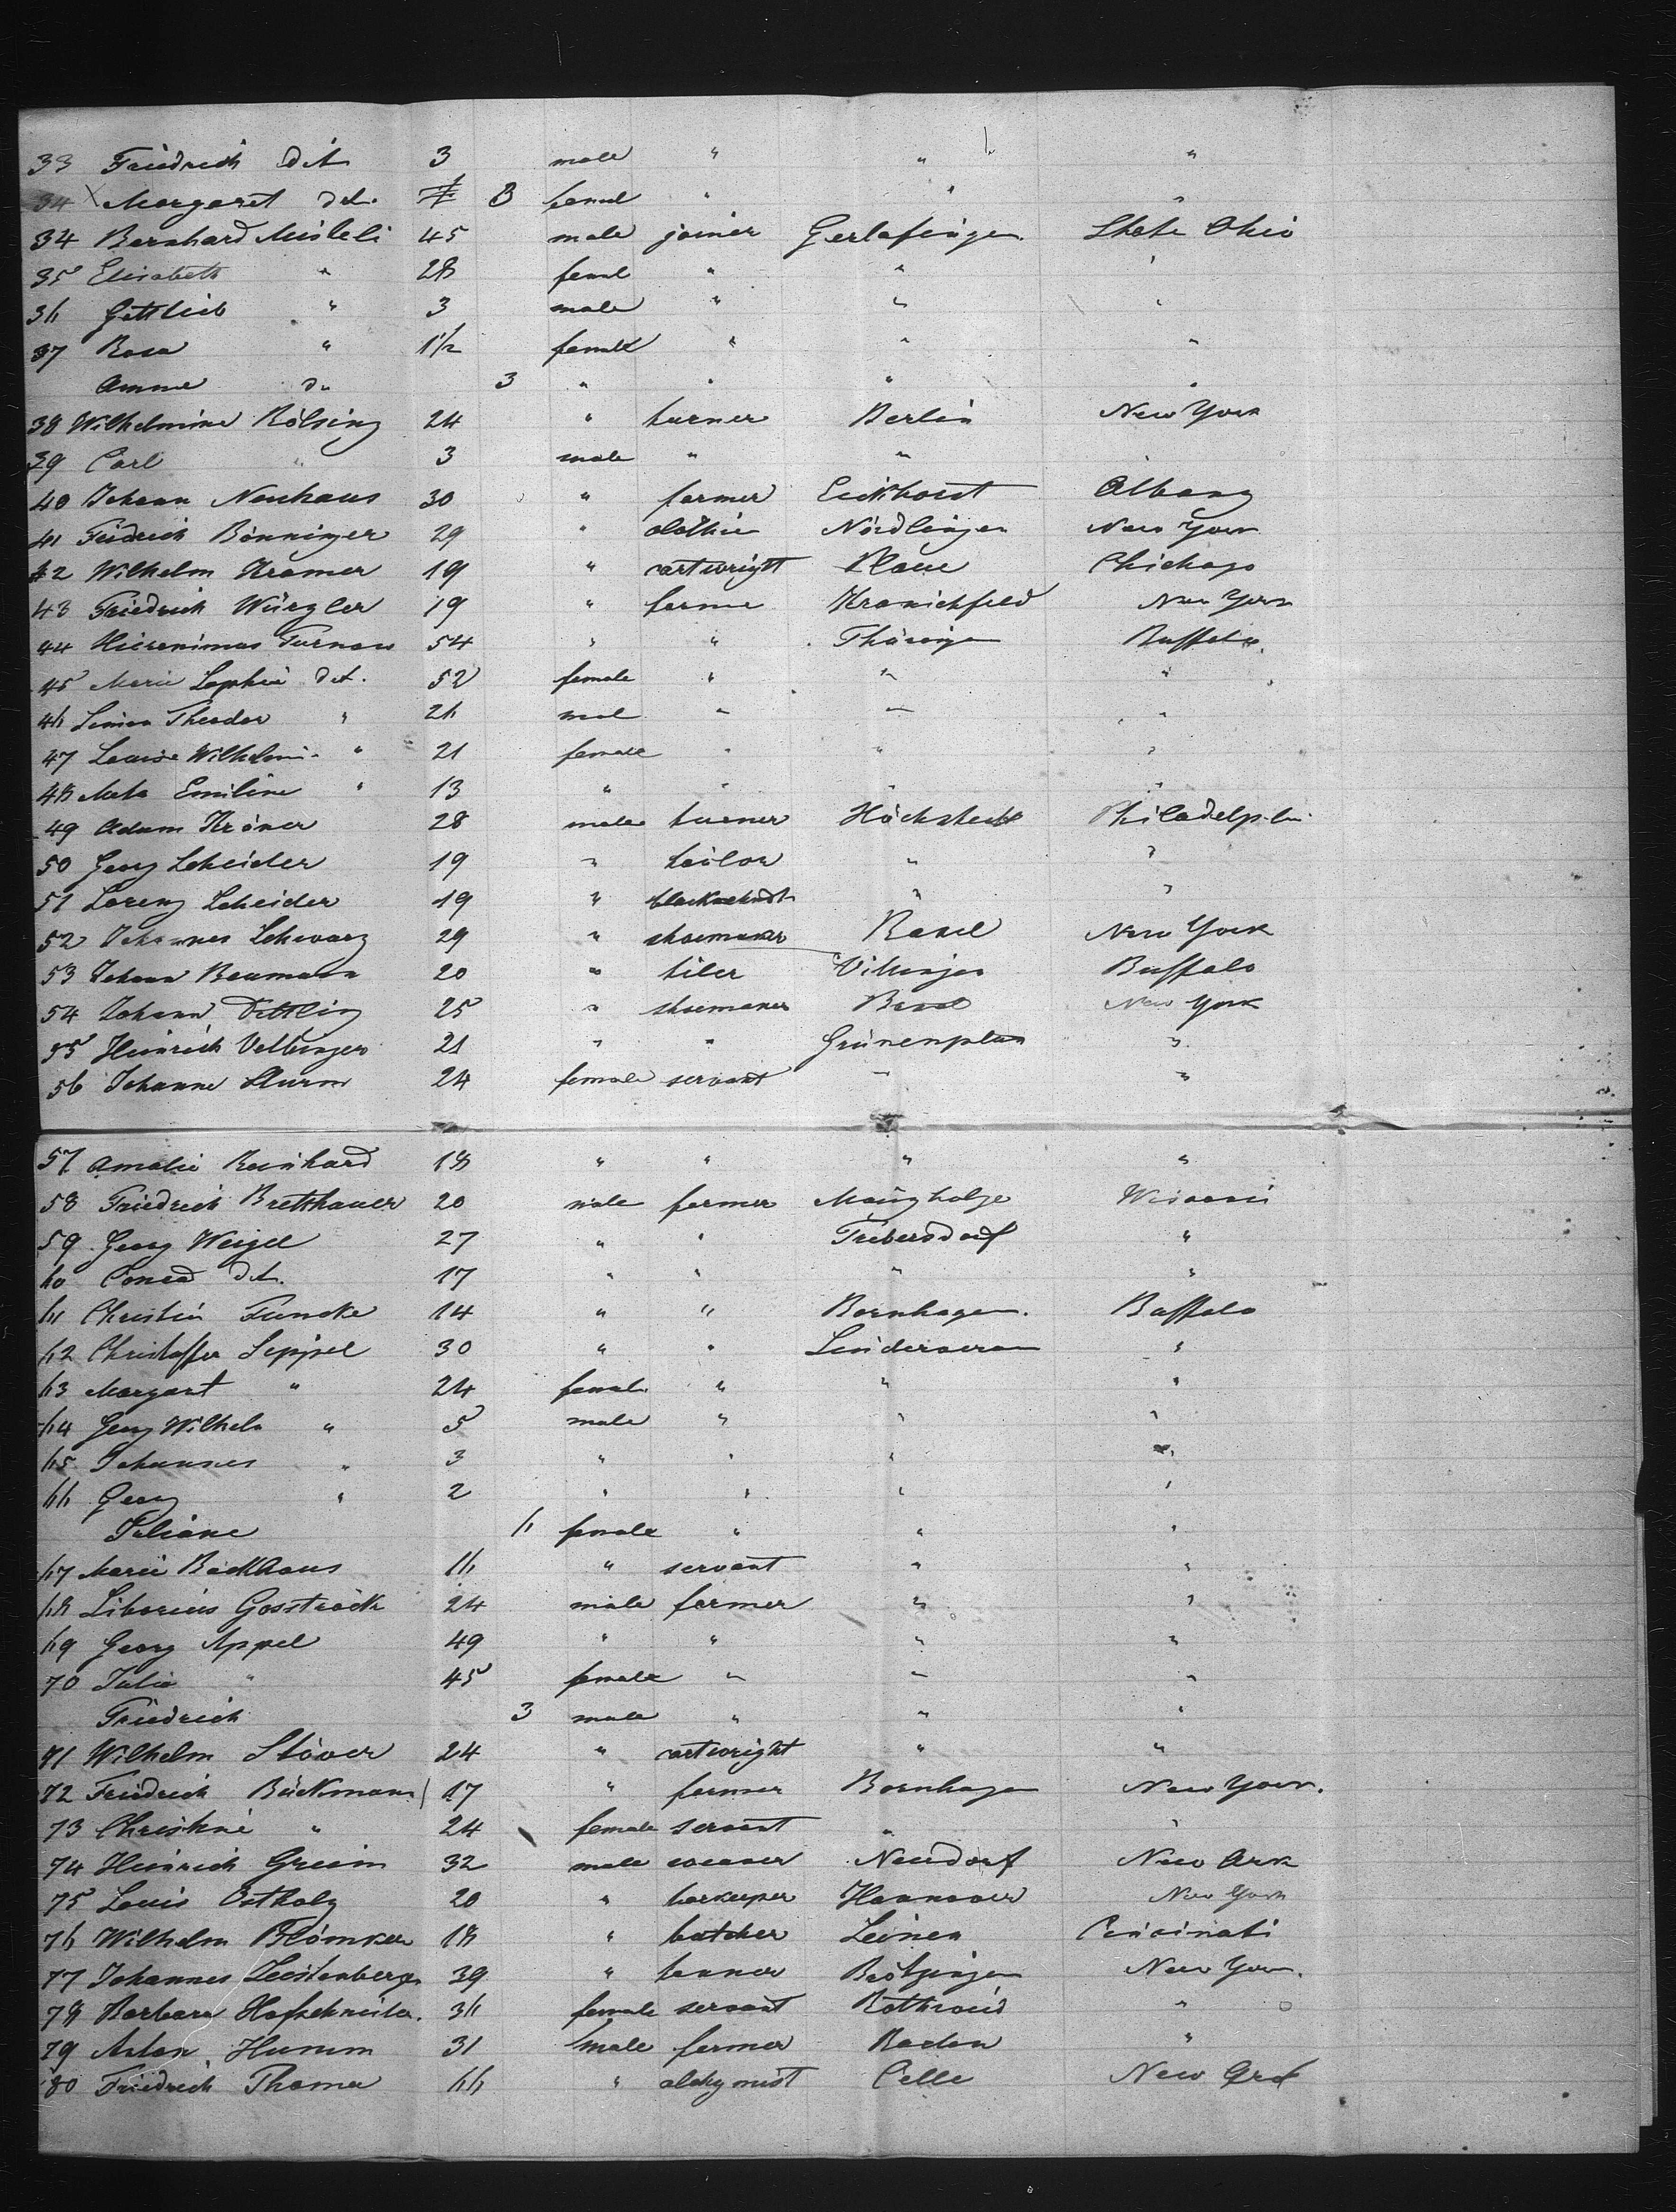 33 Friedrich det 3 male " " "
34 Margaret det. 3 femal " "
34 Bernhard Misteli 45 male joiner Gerlafingen State Ohio
35 Elisabeth " 28 femal " " "
36 Gottlieb " 3 male " " "
37 Rosa " 1½ female " " "
Amme do 3 " " " "
38 Wilhelmine Rölsing 24 " turner Berlin New York
39 Carl " 3 male " "
40 Johann Neuhaus 30 " farmer Eickhorst Albany
41 Fridrich Bönninger 29 " Nördlingen New York
42 Wilhelm Kramer 19 " cartwright Plaue Chichago
43 Friedrich Würzler 19 " farme Kranichfeld New York
44 Hieronimus Turnau 54 " " Thüringen Buffalo.
45 Marie Sophie det. 52 female " " "
46 Simon Theodor " 26 mal " " "
47 Louise Wilhelmi- " 21 female " " "
48 Meta Emiline " 13 " " "
49 Adam Kröner 28 male turner Höchstedt Philadelphi
50 Georg Scheider 19 " tailor " "
51 Lorenz Scheider 19 " " "
52 Johannes Schwarz 29 " shoemaker Basel New York
53 Johann Baumann 20 " tiler Villingen Buffalo
54 Johann Dettling 25 " shoemaker Basel New York
55 Heinrich Vellinger 21 " " Grünenplan "
56 Johanne Sturm 24 female servant " "
57 Amalie Reinhard 18 " " " "
58 Friedrich Bretthauer 20 male farmer
59 Georg Weigel 27 " " Trebersdorf "
60 Conrad det. 17 " " " "
61 Christin Funcke 14 " " Bornhagen. Buffalo
62 Christoffer Seppel 30 " " "
63 Margart " 24 female " " "
64 Georg Wilhelm " 5 male " " "
65 Johannes " 3 " " " "
66 Georg " 2 " " " "
Juliane 6 female " " "
67 Marie Backhaus 16 " servant " "
68 Liborius Gosströck 24 male farmer " "
69 Georg Appel 49 " " " "
70 Julia " 45 female " " "
Friedrich 3 male " " "
71 Wilhelm Stöver 24 " cartwright " "
72 Friedrich Bäckmann 17 " farmer Bornhagen New York.
73 Christine " 24 female servant " "
74 Heinrich Greim 32 male weaver Neudorf New Ark
75 Louis Ostholz 20 " barkeeper Hannover New York
76 Wilhelm Blömker 18 " butcher Leinen Cincinati
77 Johannes Leistenberger 39 " tanner Brötzingen New York.
78 Barbara Hofschneider. 36 female servant Rothweid "
79 Anton Humm 31 male farmer Baden "
80 Friedrich Thoma 66 " alchymist Celle New